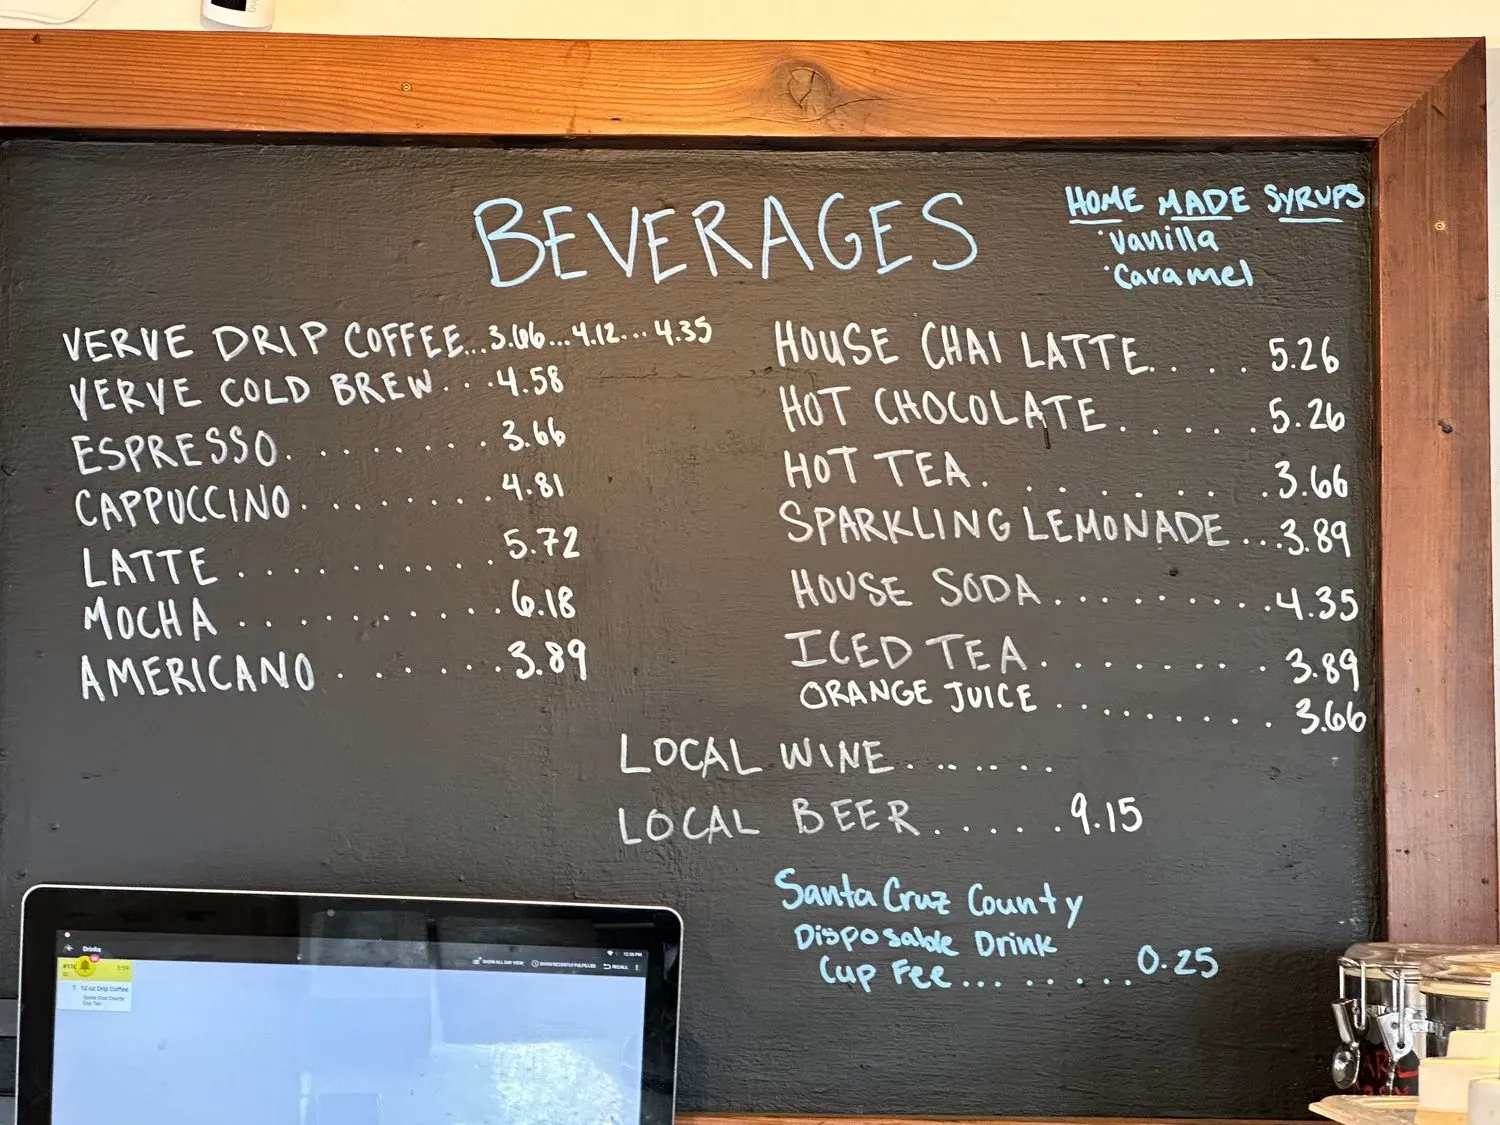 BEVERAGES
HOME MADE SYRUPS
·vanilla
·caramel
VERVE DRIP COFFEE...3.66...4.12...4.35
VERVE COLD BREW...4.58
ESPRESSO........3.66
CAPPUCCINO........4.81
LATTE..........5.72
MOCHA..........6.18
AMERICANO......3.89
HOUSE CHAI LATTE....5.26
HOT CHOCOLATE.....5.26
HOT TEA........3.66
SPARKLING LEMONADE...3.89
HOUSE SODA.........4.35
ICED TEA........3.89
ORANGE JUICE.........3.66
LOCAL WINE.......
LOCAL BEER.....9.15
Santa Cruz County
Disposable Drink
Cup Fee........0.25
Drinks
12:36 PM
SHOW ALL DAY VIEW
SHOW RECENTLY FULFILLED
RECALL
1 12 oz Drip Coffee
Santa Cruz County
Cup Tax